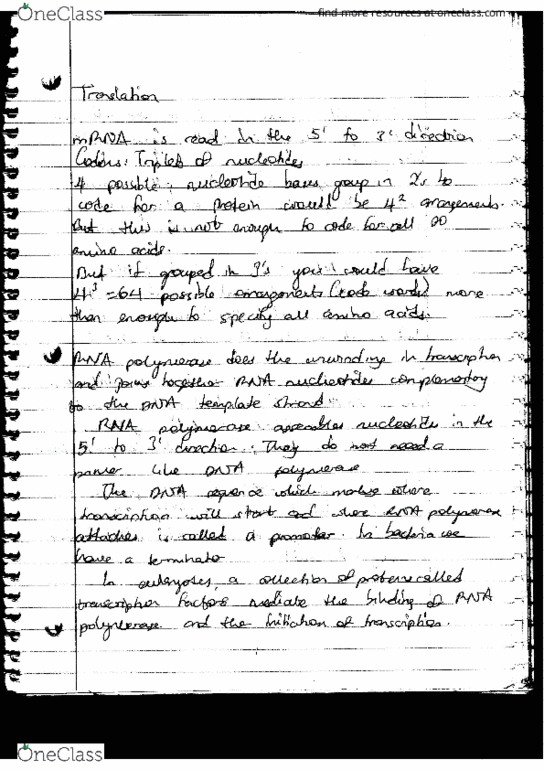 OneClass
find more resources at oneclass.com
Translation
mRNA is read in the 5' to 3' direction
Codons: Triplets of nucleotides
4 possible nucleotide bases group in 2s to
code for a protein would be 4² arrangements.
But this is not enough to code for all 20
amino acids.
But if grouped in 3's you would have
4³ = 64 possible arrangements (code words) more
than enough to specify all amino acids.
RNA polymerase does the unwinding in transcription
and joins together RNA nucleotides complementary
to the DNA template strand
RNA polymerase assembles nucleotides in the
5' to 3' direction. They do not need a
primer like DNA polymerase
The DNA sequence which marks where
transcription will start and where RNA polymerase
attaches is called a promoter. In bacteria we
have a terminator
In eukaryotes, a collection of proteins called
transcription factors mediate the binding of RNA
polymerase and the initiation of transcription.
OneClass